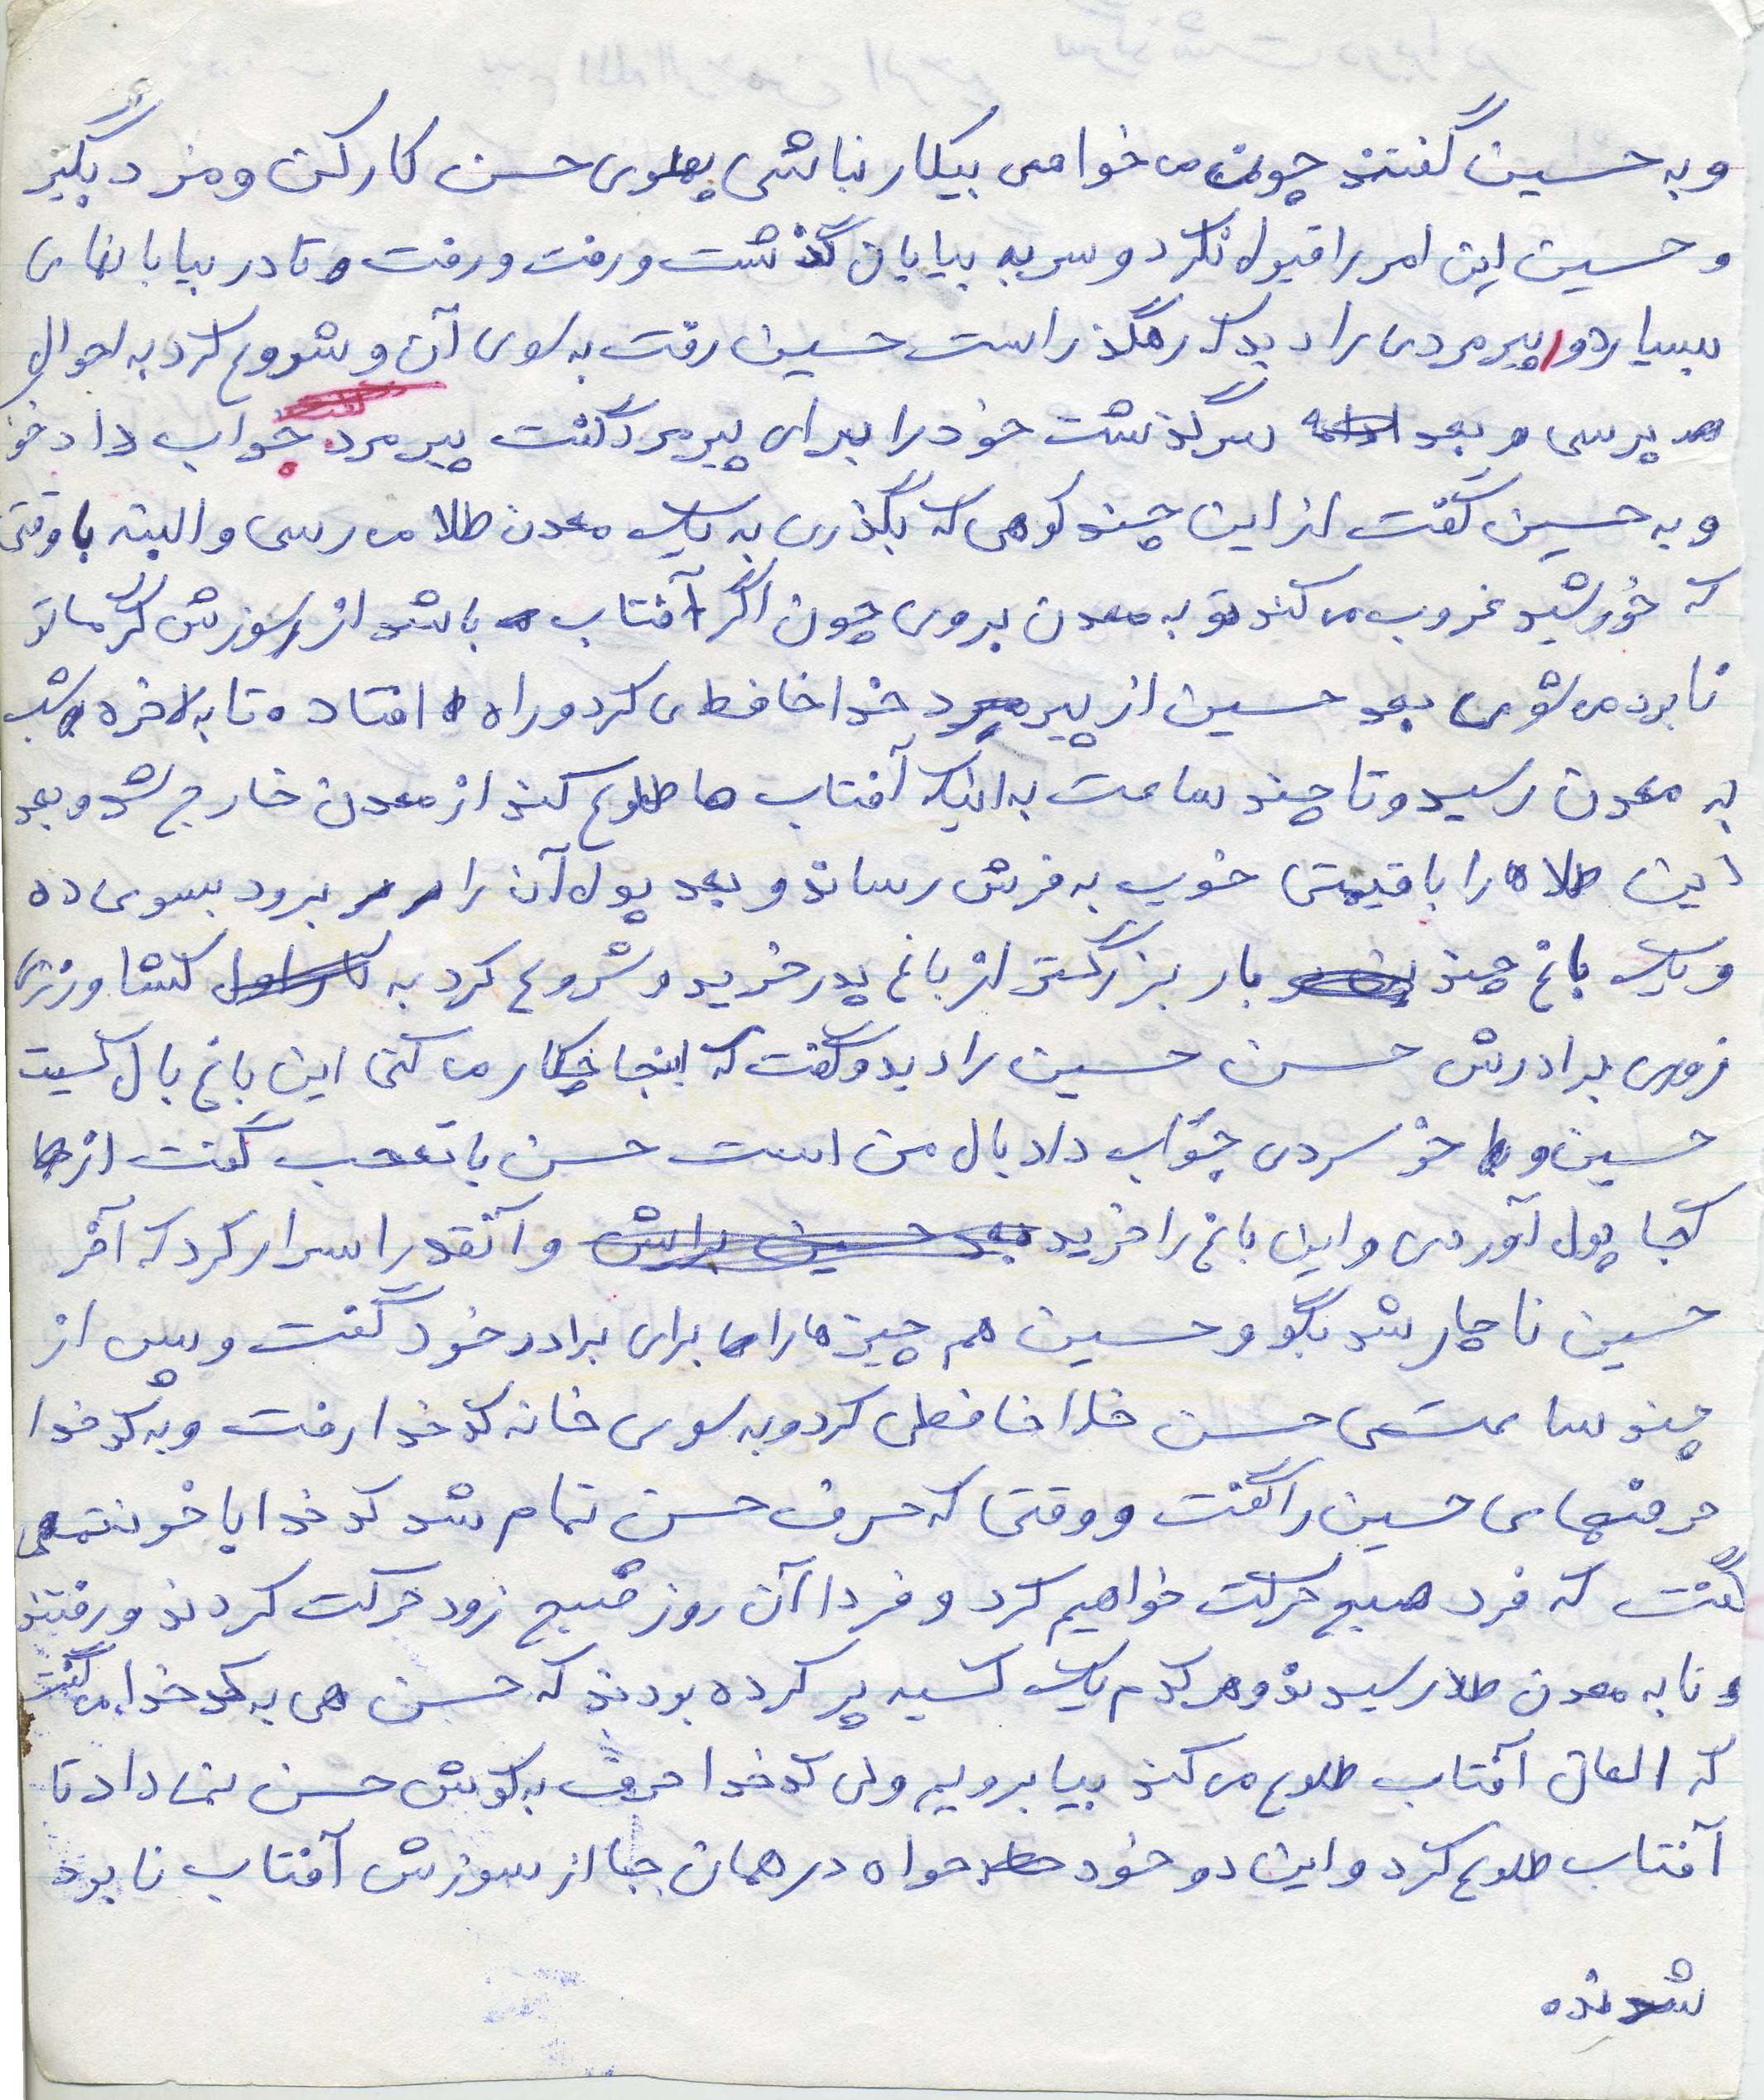 و به حسین گفتند چون می خواهی بیکار نباشی پهلوی حسن کار کن و مزد بگیر
و حسین این امر را قبول نکرد و سر به بیابان گذشت و رفت و رفت و تا در بیابانهای
بسیار دور پیرمردی را دید که رهگذر است حسین رفت به سوی آن و شروع کرد به احوال
پرسی و بعد سرگذشت خود را برای پیرمرد گفت پیرمرد جواب داد خو
و به حسین گفت از این چند کوهی که بگذری به یک معدن طلا می رسی و البته با وقتی
که خورشید غروب می کند تو به معدن بروی چون اگر آفتاب باشد از سوزش گرما تو
نابرد می شوی بعد حسین از پیرمرد خداحافظی کرد و راه افتاده تا به لاخره شب
به معدن رسید و تا چند ساعت به اینکه آفتاب ها طلوع کند از معدن خارج شد و بعد
این طلاه را با قیمتی خوب به فرش رساند و بعد پول آن را برود بسوی ده
و یک باغ چند بار بزرگتر از باغ پدر خرید و شروع کرد به کشاورزی
زوری برادرش حسن حسین را دید و گفت که اینجا چکار می کنی این باغ بال کسیت
حسین و با خو سردی جواب داد بال من است حسن با تعجب گفت از
کجا پول آوردی و این باغ را خرید و آنقدر اسرار کرد که آخر
حسین ناچار شد بگو و حسین هم چیزها را برای برادر خود گفت و پس از
چند ساعتی حسن خدا حافظی کرد و به سوی خانه کدخدا رفت و به کدخدا
حرفهای حسین را گفت و وقتی که حرف حسن تمام شد کدخدا با خو
گفت که فرد صبح حرکت خواهیم کرد و فردا آن روز صبح زود حرکت کردند و رفتند
و تا به معدن طلا رسیدند و هر کدم یک کسیه پر کرده بودند که حسن هی به کدخدا می گفت
که العان آفتاب طلوع می کند بیا برویم ولی کدخدا حرف به گوش حسن نمی داد تا
آفتاب طلوع کرد و این دو خود خواه در همان جا از سوزش آفتاب نابود
شدنده